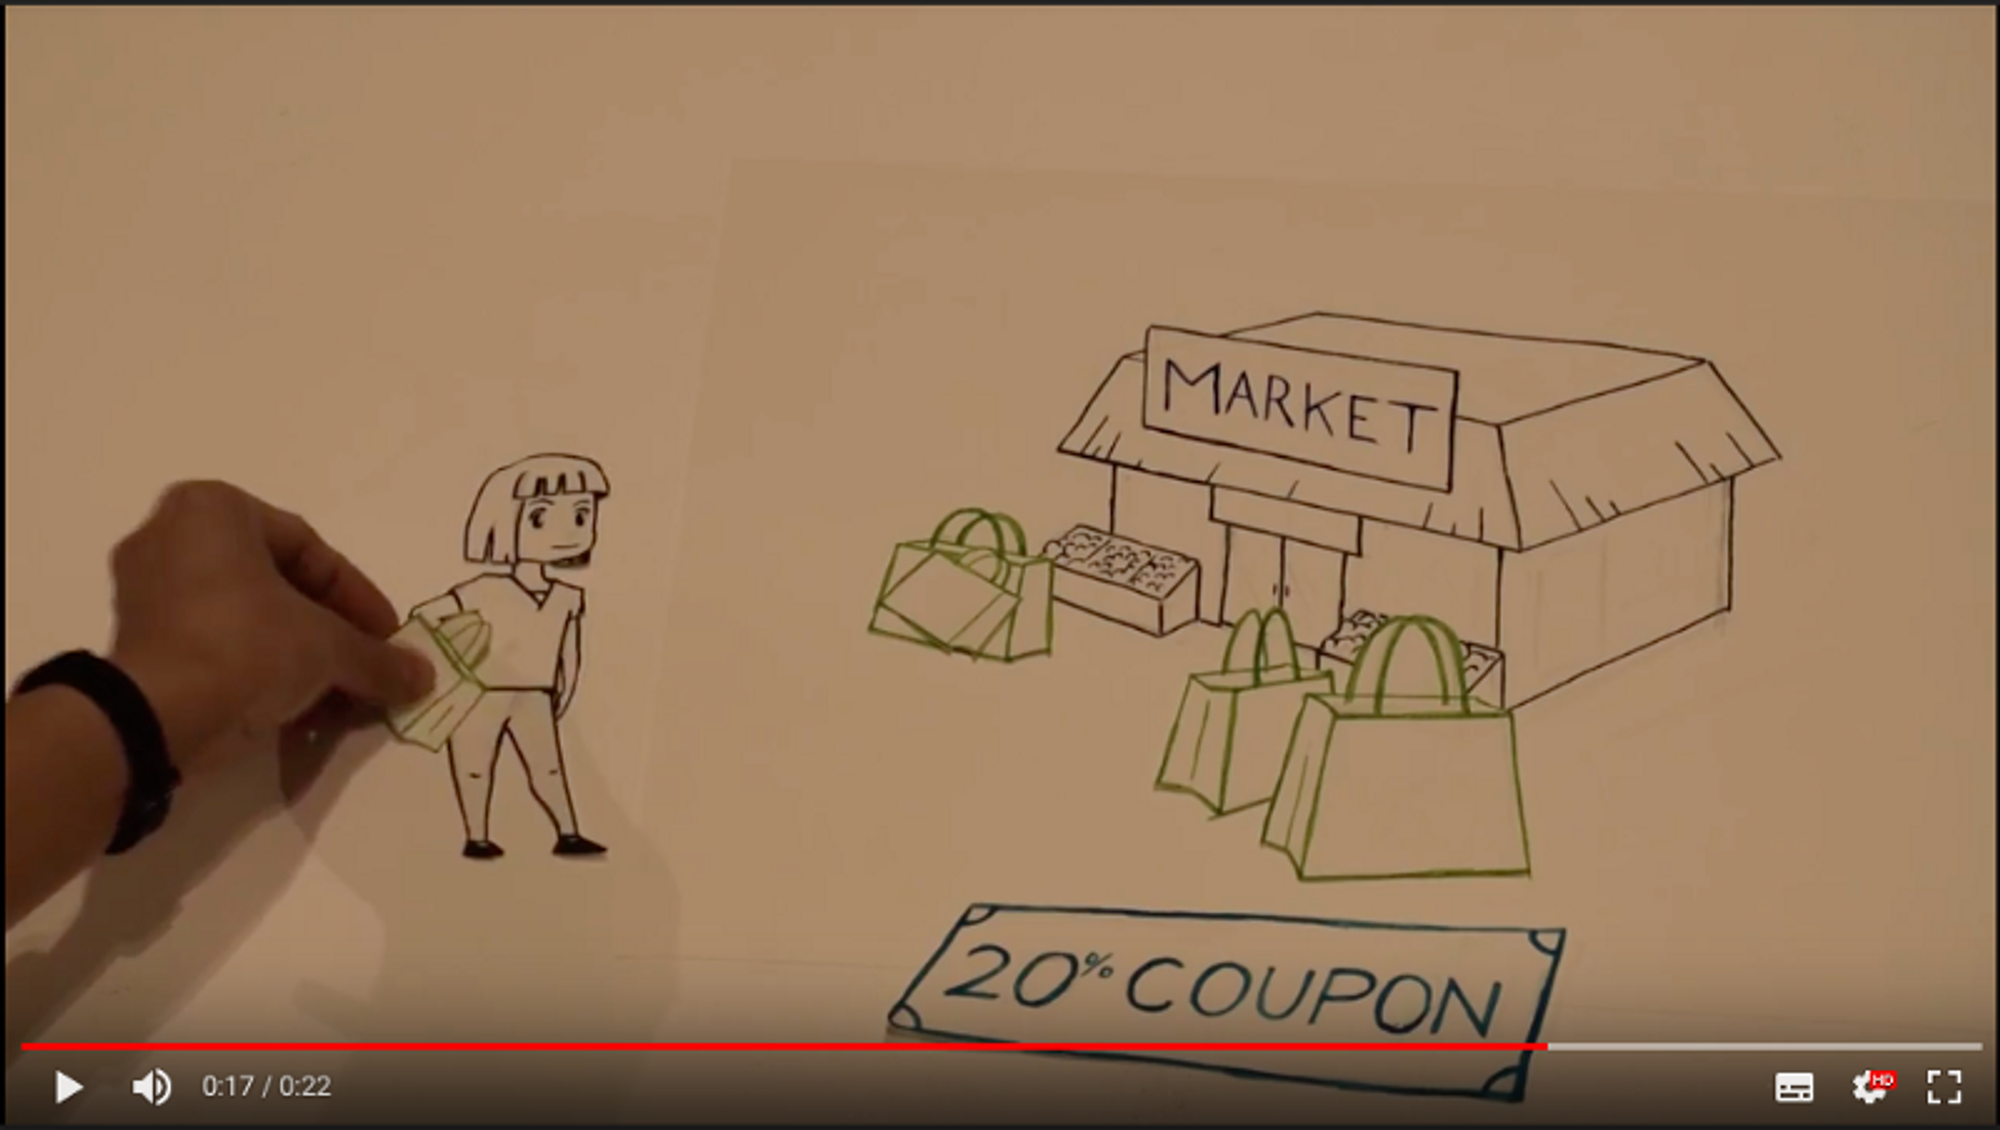 MARKET
20% COUPON
0:17 / 0:22
HD